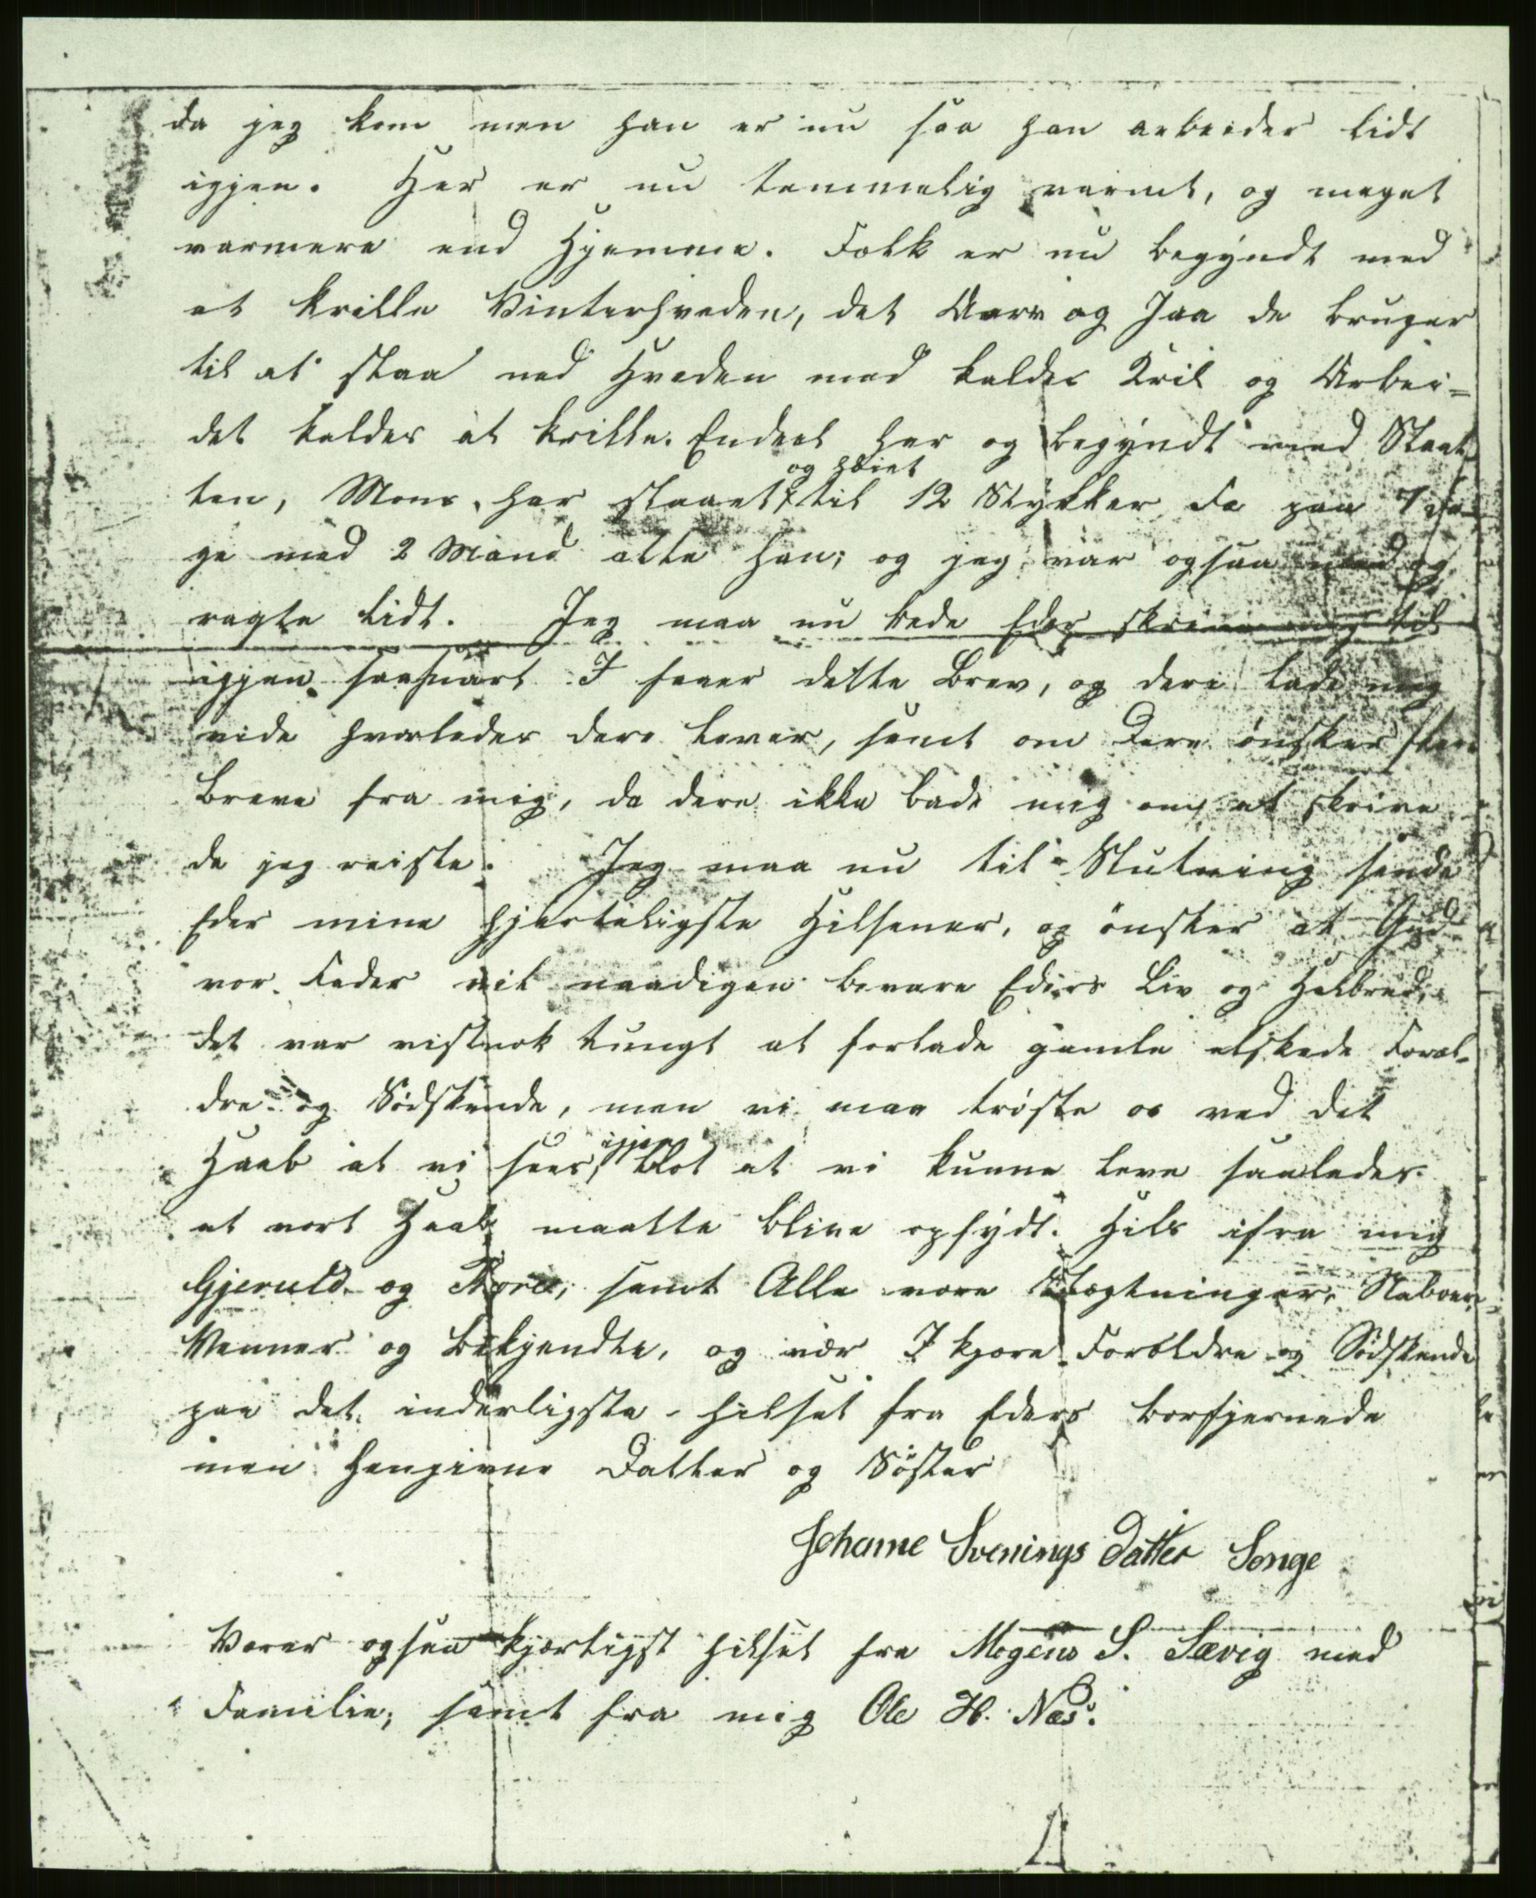 da jeg kom men han er nu saa han arbeider lidt
igjen. Her er nu temmelig varmt, og meget
varmere end Hjemme. Folk er nu begyndt med
at krille Vinterhveden, det Aarv og Jaa de bruger
til at slaa ned Hveden med kaldes Kril og Arbei-
det kaldes at krille. Endeel har og begyndt med Slaat
ten, Mons har slaaet og høiet til 12 Stykker Fa paa 7 Da-
ge med 2 Mand atte han; og jeg var ogsaa med og
ragte lidt. Jeg maa nu bede Eder skrive mig til
igjen saasnart I faaer dette Brev, og deri lade mig
vide hvorledes dere lever, samt om Dere ønsker flere
Breve fra mig, da dere ikke bade mig om at skrive
da jeg reiste. Jeg maa nu til Slutning sende
Eder mine hjerteligste Hilsener, og ønsker at Gud
vor Fader vil naadigen bevare Eders Liv og Helbred,
det var vistnok tungt at forlade gamle elskede Foræl-
dre og Sødskende, men vi maa trøste os ved det
Haab at vi sees igjen, blot at vi kunne leve saaledes
at vort Haab maatte blive opfydt. Hils ifra mig
Gjeruld og Thore, samt Alle vore Slægtninger, Naboer,
Venner og bekjendte, og vær I kjære Forældre og Sødskende
paa det inderligste hilset fra Eders bortfjernede
men hengivne Datter og Søster
Johanne Svenings Datter Songe
Værer ogsaa kjærligst hilset fra Mogens S. Sævig med
Familie, samt fra mig Ole H. Næs.